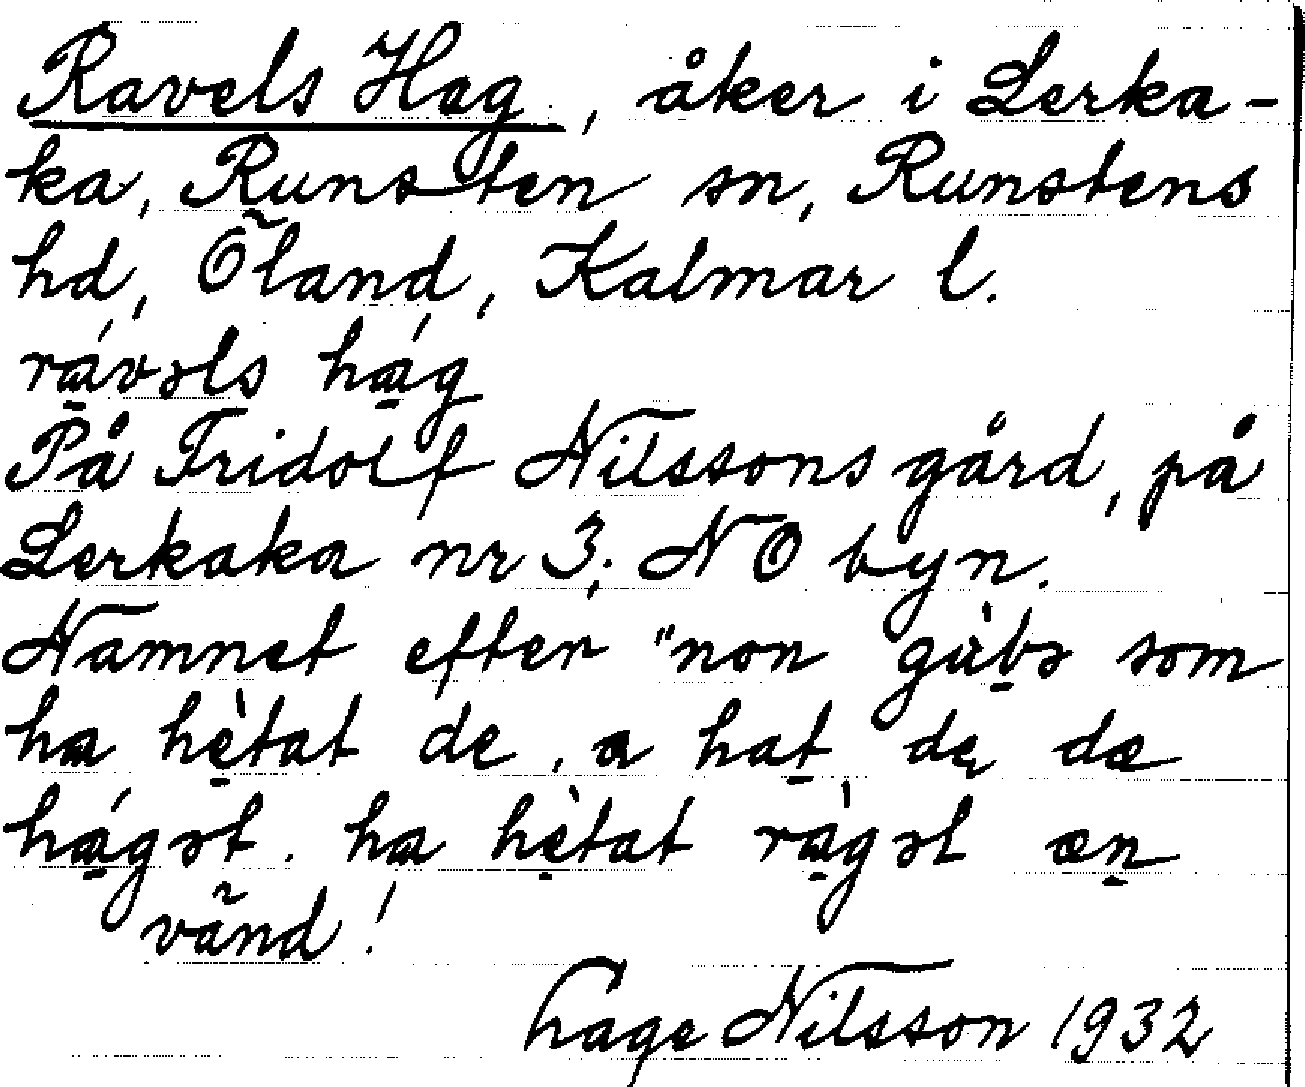 Ravels Hag, åker i Lerka-
ka, Runsten sn, Runstens
hd, Öland, Kalmar l.
rávəls hág
På Fridolf Nilssons gård, på
Lerkaka nr 3; NO byn.
Namnet efter "non gùbə som
ha hètat de. a hat dę dæ
hágət. ha hètat ràgəl æn
vänd!
Hage Nilsson 1932